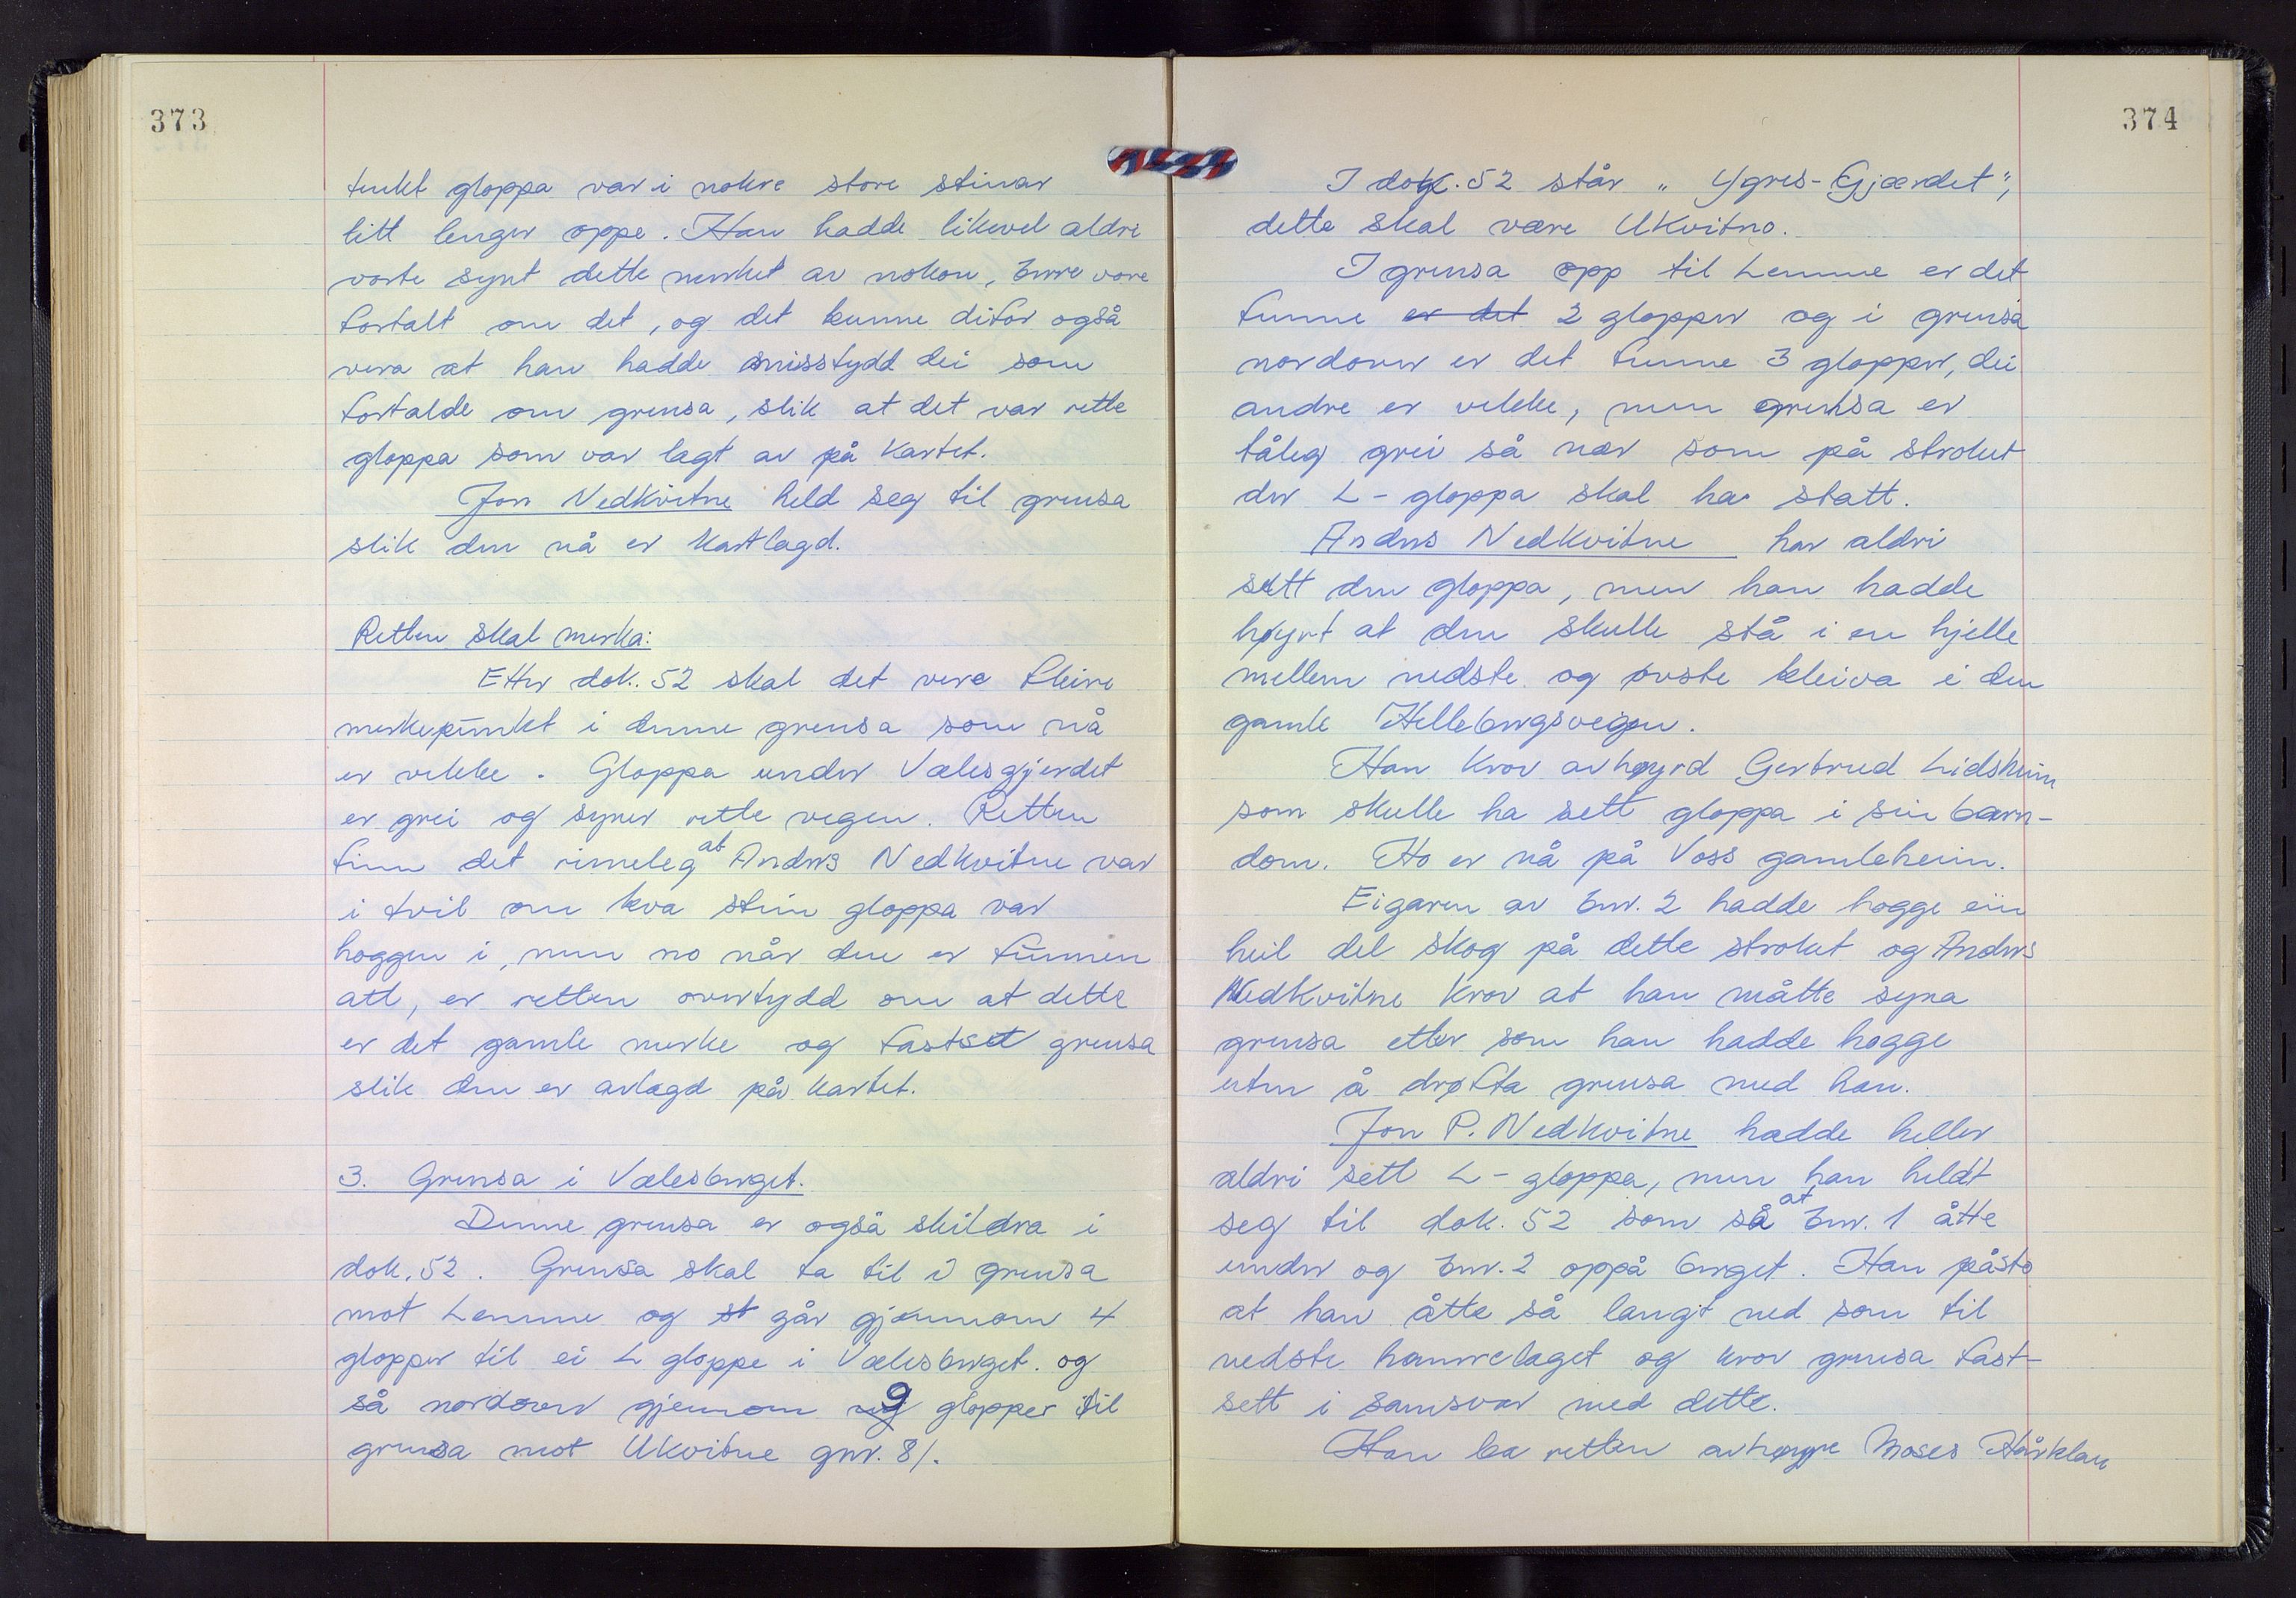 373
tenkt gloppa var i nokre store steinar
litt lenger oppe. Han hadde likevel aldri
vorte synt dette merket av nokon, berre vore
fortalt om det, og det kunne difor også
vera at han hadde misstydd dei som
fortalde om grensa, slik at det var rette
gloppa som var lagt av på kartet.
Jon Nedkvitne held seg til grensa
slik den nå er kartlagd.
Retten skal merka:
Etter dok. 52 skal det vere fleire
merkepunkt i denne grensa som nå
er vekke. Gloppa under Vælesgjerdet
er grei og syner rette vegen. Retten
finn det rimeleg at Anders Nedkvitne var
i tvil om kva stein gloppa var
hoggen i, men no når den er funnen
att, er retten overtydd om at dette
er det gamle merke og fastset grensa
slik den er avlagd på kartet.
3. Grensa i Vælesberget.
Denne grensa er også skildra i
dok. 52. Grensa skal ta til i grensa
mot Lemme og st går gjennom 4
glopper til ei L gloppe i Vælesberget. og
så nordover gjennom 9 glopper til
grensa mot Ukvitne gnr. 81.
374
I dok. 52 står "Ygres-Gjærdet",
dette skal være Ukvitno.
I grensa opp til Lemme er det
funne er det 2 glopper og i grensa
nordover er det funne 3 glopper, dei
andre er vekke, men grensa er
tåleg grei så nær som på stroket
der L-gloppa skal ha statt.
Anders Nedkvitne har aldri
sett den gloppa, men han hadde
høyrt at den skulle stå i en hjelle
mellem nedste og øvste kleiva i den
gamle Hellebergsvegen.
Han krov avhøyrd Gertrud Lidsheim
som skulle ha sett gloppa i sin barn-
dom. Ho er nå på Voss gamleheim.
Eigaren av bnr. 2 hadde hogge ein
heil del skog på dette stroket og Anders
Nedkvitne krov at han måtte syna
grensa etter som han hadde hogge
uten å drøfta grensa med han.
Jon P. Nedkvitne hadde heller
aldri sett L-gloppa, men han heldt
seg til dok. 52 som så at bnr. 1 åtte
under og bnr. 2 oppå berget. Han påsto
at han åtte så langt ned som til
nedste hamrelaget og krov grensa fast-
sett i samsvar med dette.
Han ba retten avhøyre Moses Hårklau